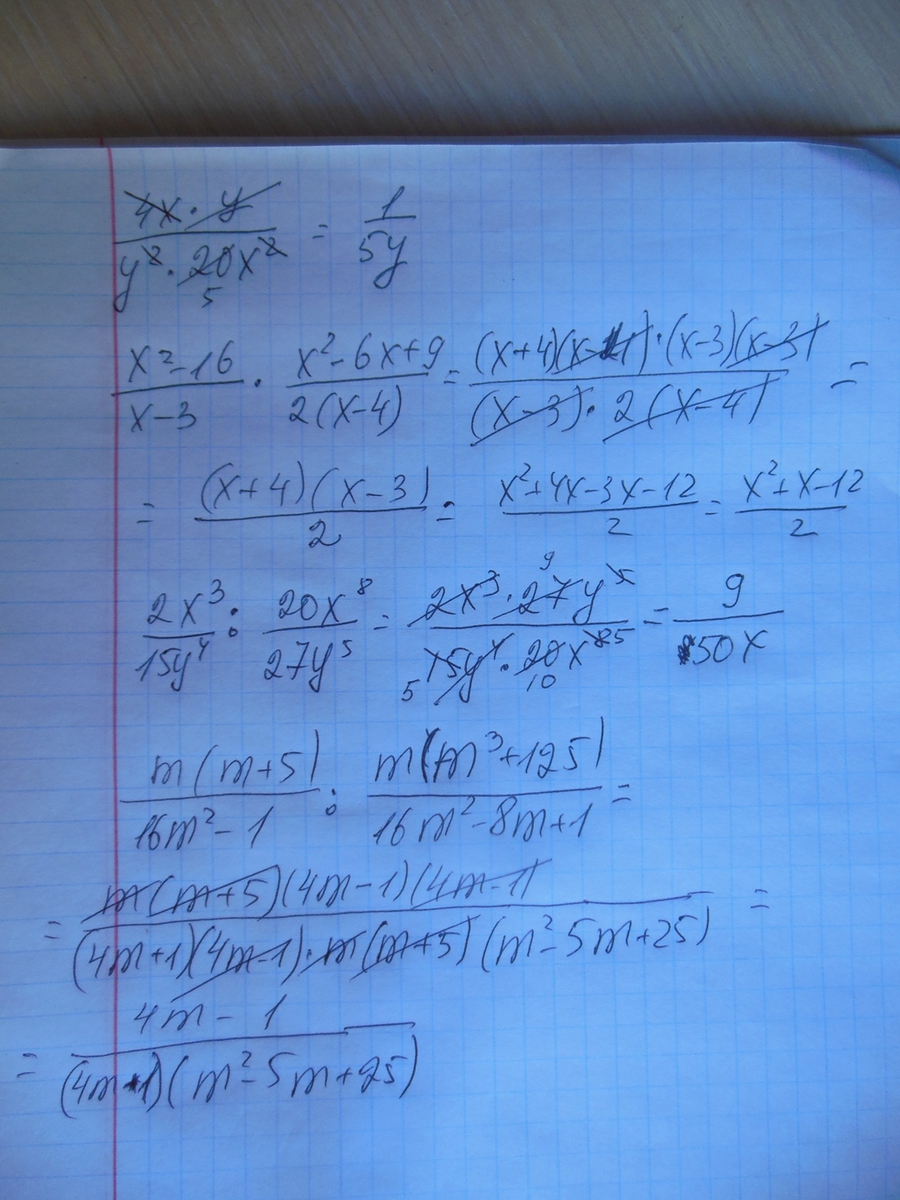 (4x · y)/(y² · 20x²) 5 = 1/(5y)
(x²-16)/(x-3) · (x²-6x+9)/(2(x-4)) = ((x+4)(x-4) · (x-3)(x-3))/((x-3) · 2(x-4)) =
= ((x+4)(x-3))/2 = (x²+4x-3x-12)/2 = (x²+x-12)/2
(2x³)/(15y⁴) : (20x⁸)/(27y⁵) = (2x³ · 27 9 y⁵)/(5 15y⁴ · 20 10 x⁸ ⁵) = 9/(50x)
(m(m+5))/(16m²-1) : (m(m³+125))/(16m²-8m+1) =
= (m(m+5)(4m-1)(4m-1))/((4m+1)(4m-1) · m(m+5)(m²-5m+25)) =
= (4m-1)/((4m+1)(m²-5m+25))